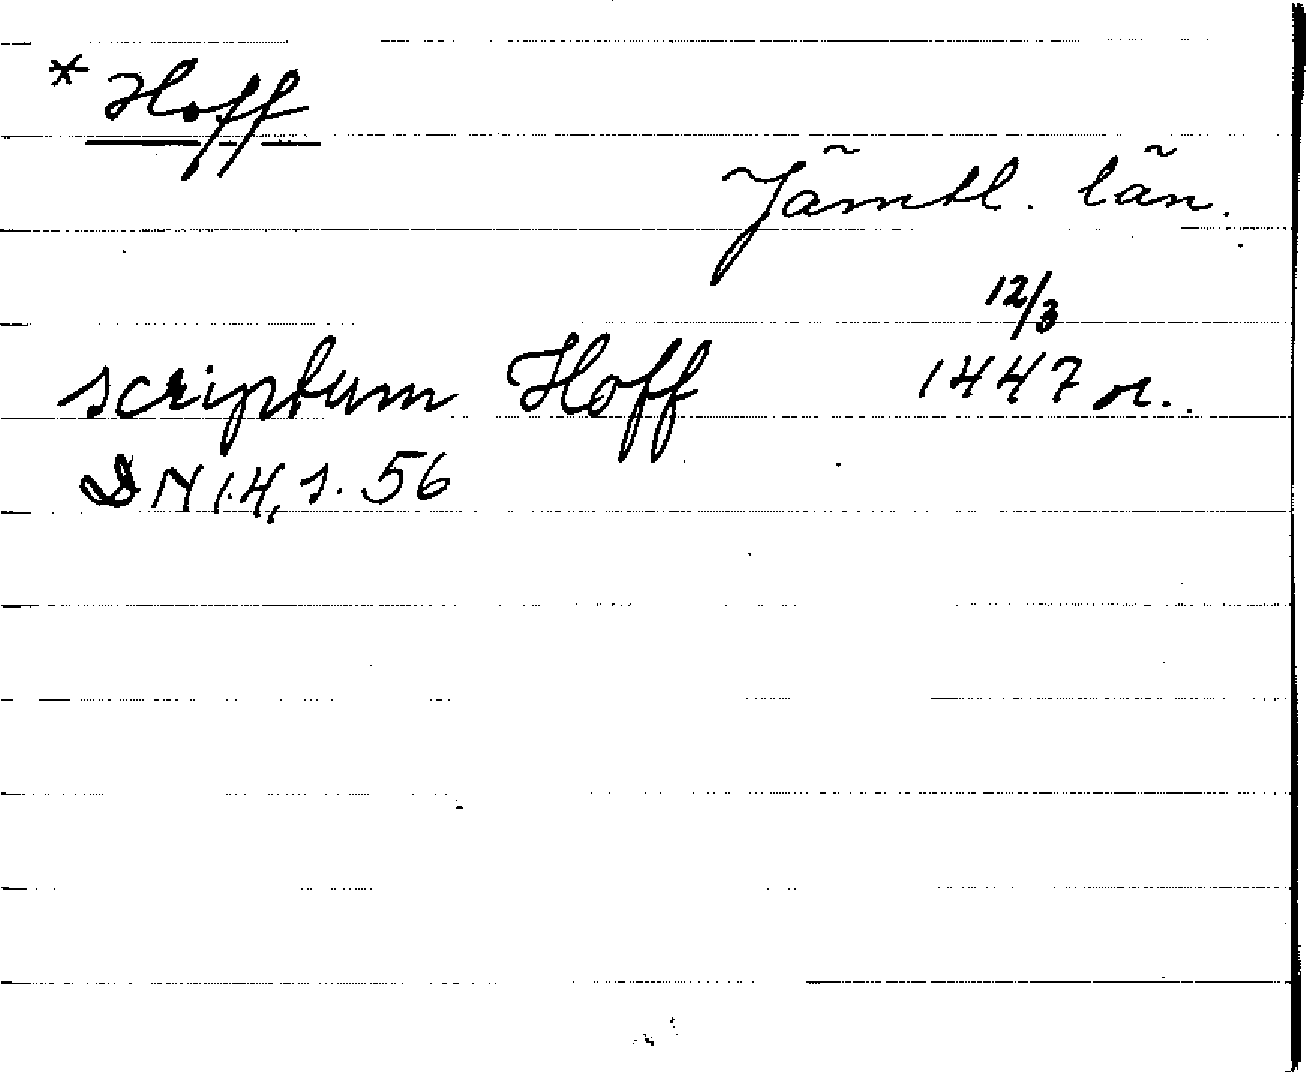 * Hoff
Jämtl. län.
12/3
scriptum Hoff 1447 or.
DN 14, s. 56